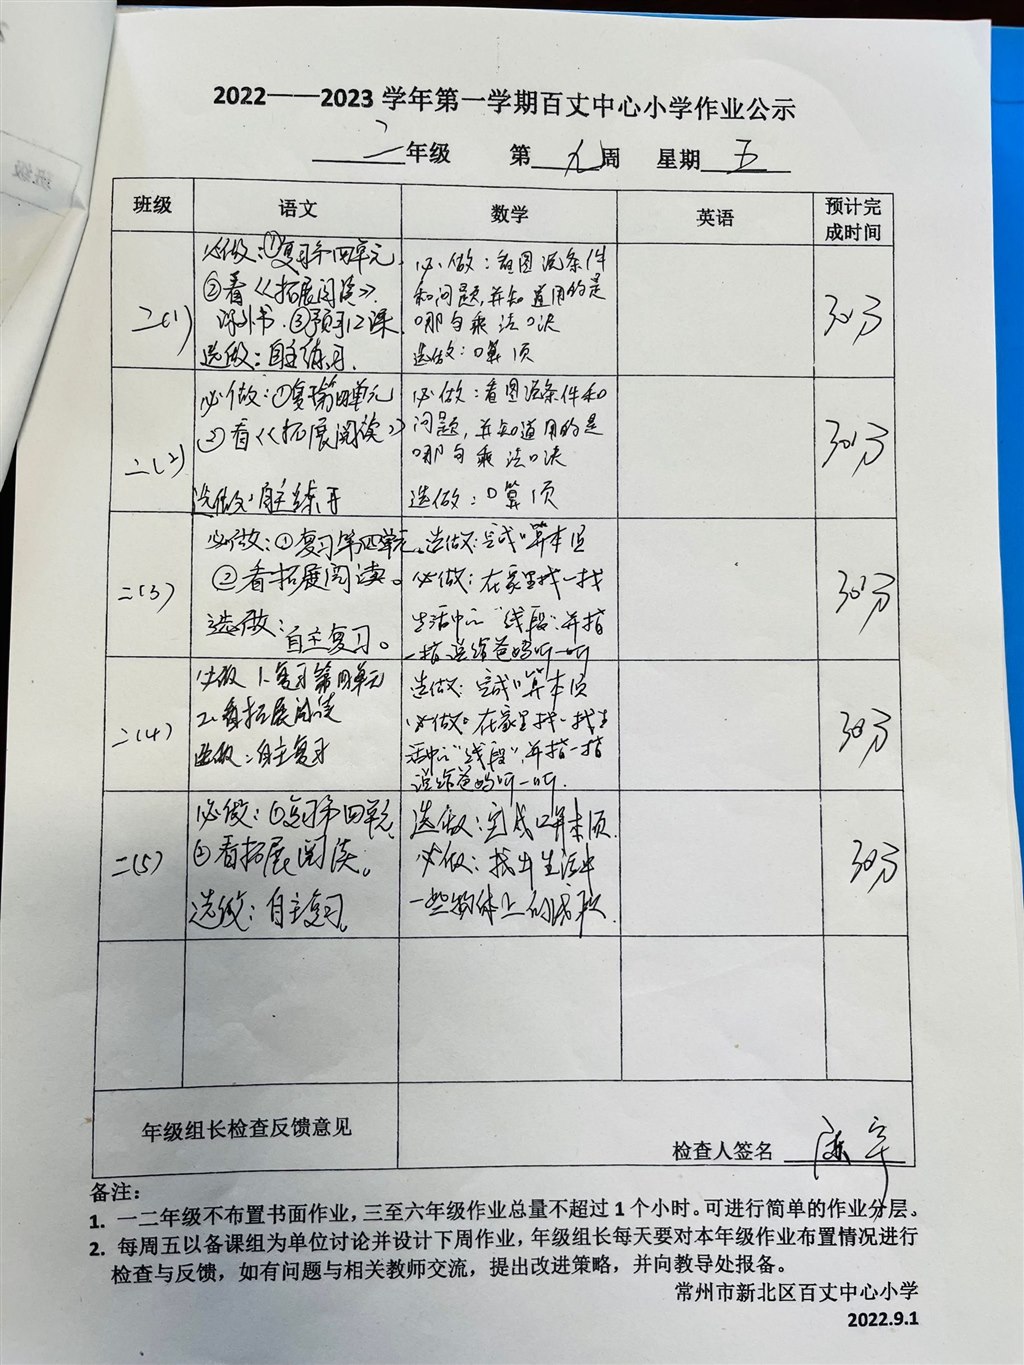 2022——2023 学年第一学期百丈中心小学作业公示
二年级 第九周 星期五
班级 语文 数学 英语 预计完成时间
二(1)
必做：①复习第四单元
②看《拓展阅读》.
课外书.③预习12课
选做：自主练习.
必做：看图说条件
和问题,并知道用的是
哪句乘法口诀
选做：口算1页
30分
二(2)
必做：①复习第四单元
②看《拓展阅读》
选做：自主练习
必做：看图说条件和
问题，并知道用的是
哪句乘法口诀
选做：口算1页
30分
二(3)
必做：①复习第四单元.
②看拓展阅读。
选做：自主复习。
选做：完成口算本1页
必做：在家里找一找
生活中的“线段”,并指
一指说给爸妈听一听
30分
二(4)
必做 1.复习第四单元
2.看拓展阅读
选做：自主复习
选做：完成口算本1页
必做：在家里找一找生
活中的“线段”,并指一指
说给爸妈听一听.
30分
二(5)
必做：①复习第四单元
②看拓展阅读。
选做：自主复习。
选做：完成口算本1页.
必做：找出生活中
一些物体上的线段.
30分
年级组长检查反馈意见
检查人签名
备注：
1. 一二年级不布置书面作业，三至六年级作业总量不超过 1 个小时。可进行简单的作业分层。
2. 每周五以备课组为单位讨论并设计下周作业，年级组长每天要对本年级作业布置情况进行
检查与反馈，如有问题与相关教师交流，提出改进策略，并向教导处报备。
常州市新北区百丈中心小学
2022.9.1